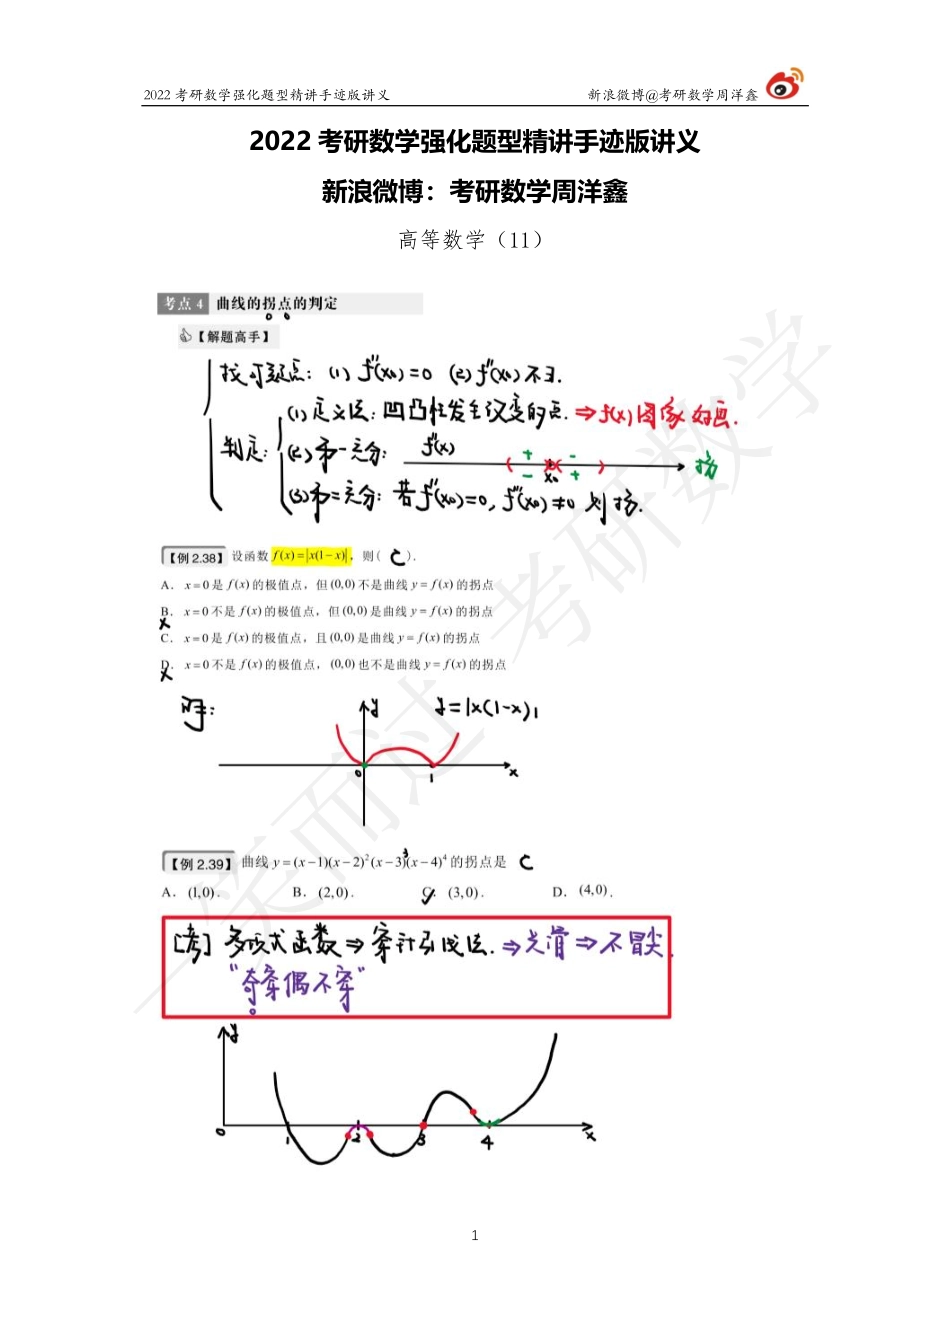 2022 考研数学强化题型精讲手迹版讲义 新浪微博@考研数学周洋鑫
2022 考研数学强化题型精讲手迹版讲义
新浪微博：考研数学周洋鑫
高等数学（11）
考点 4 曲线的拐点的判定
【解题高手】
找可疑点：(1) f''(x₀)=0 (2) f''(x₀)不∃.
(1)定义法：凹凸性发生改变的点. ⇒f(x)图像好画.
判定：(2)第一充分： f''(x) + - x₀ - + ⇒ 拐
(3)第二充分：若f''(x₀)=0, f'''(x₀)≠0 则拐.
【例 2.38】设函数 f(x)=|x(1−x)|，则( C ).
A. x=0 是 f(x) 的极值点，但 (0,0) 不是曲线 y=f(x) 的拐点
B. x=0 不是 f(x) 的极值点，但 (0,0) 是曲线 y=f(x) 的拐点
C. x=0 是 f(x) 的极值点，且 (0,0) 是曲线 y=f(x) 的拐点
D. x=0 不是 f(x) 的极值点， (0,0) 也不是曲线 y=f(x) 的拐点
解： y y=|x(1-x)|
0 1 x
【例 2.39】曲线 y=(x−1)(x−2)²(x−3)³(x−4)⁴ 的拐点是 C
A. (1,0). B. (2,0). C. (3,0). D. (4,0).
[考] 多项式函数⇒穿针引线法. ⇒光滑⇒不冒尖.
“奇穿偶不穿”
y
0 1 2 3 4 x
一笑而过 考研数学
1